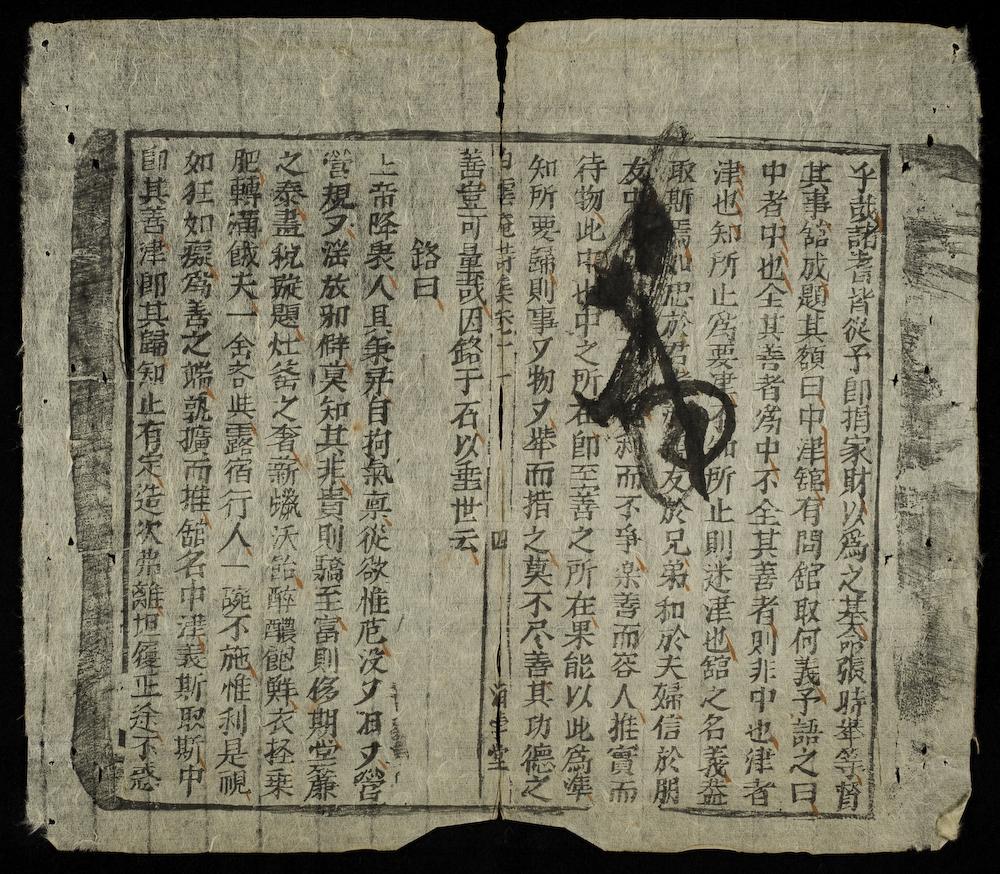 乎哉諸耆皆從予卽捐家財以爲之基命張時舉等督
其事舘成題其額曰中津舘有問舘取何義予語之曰
中者中也全其善者爲中不全其善者則非中也津者
津也知所止爲要津不知所止則迷津也舘之名義盖
取斯焉如忠於君 友於兄弟和於夫婦信於朋
友中 和而不爭親善而容人推實而
待物此中也中之所在卽至善之所在果能以此爲準
知所要歸則事又物又舉而措之莫不尽善其功德之
善豈可量哉因銘于石以垂世云
白雲庵詩集卷二 四 清雲堂
銘曰
上帝降衷人具秉彛自拘氣稟從欲惟危没又汩又營
營規又滛放邪僻莫知其非貴則驕至富則侈期堂簾
之泰晝稅璇題灶釜之奢新蠟沃飴醉醲飽鮮衣輕乘
肥轉溝餓夫一舍吝此露宿行人一碗不施惟利是視
如狂如癡爲善之端孰擴而推舘名中津義斯取斯中
卽其善津卽其歸知止有定造次弗離坦履正途不惑